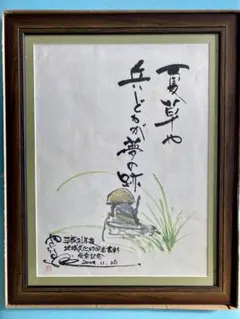 夏草や
兵どもが夢の跡
平成21年度
地域文化功労者表彰
受賞記念
2009.11.16